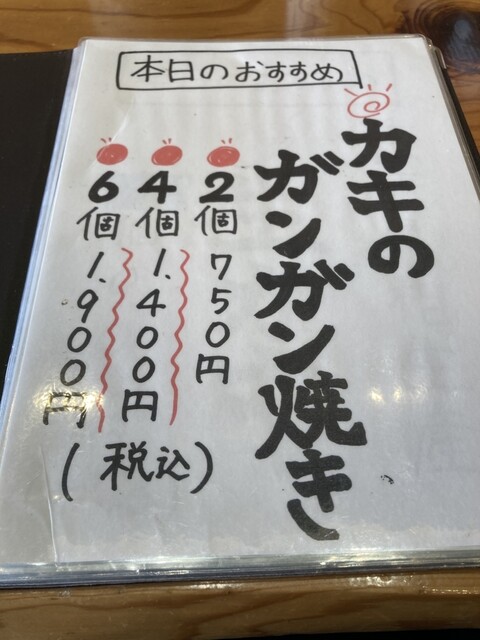 本日のおすすめ
カキの
ガンガン焼き
2個 750円
4個 1.400円
6個 1.900円
(税込)